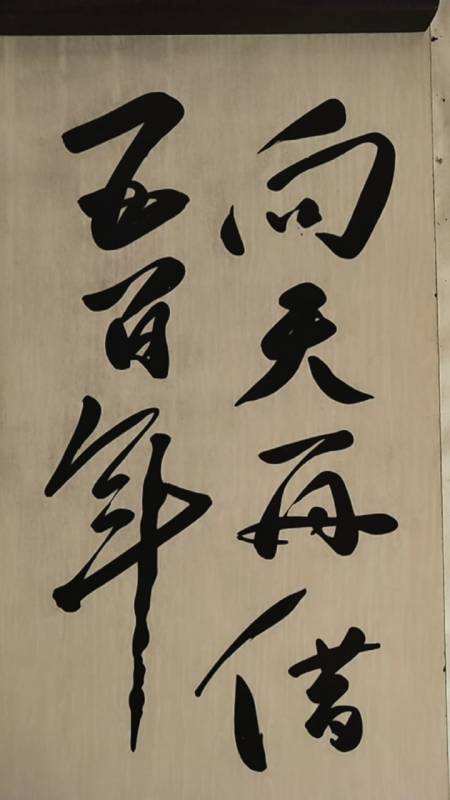 向天再借
五百年